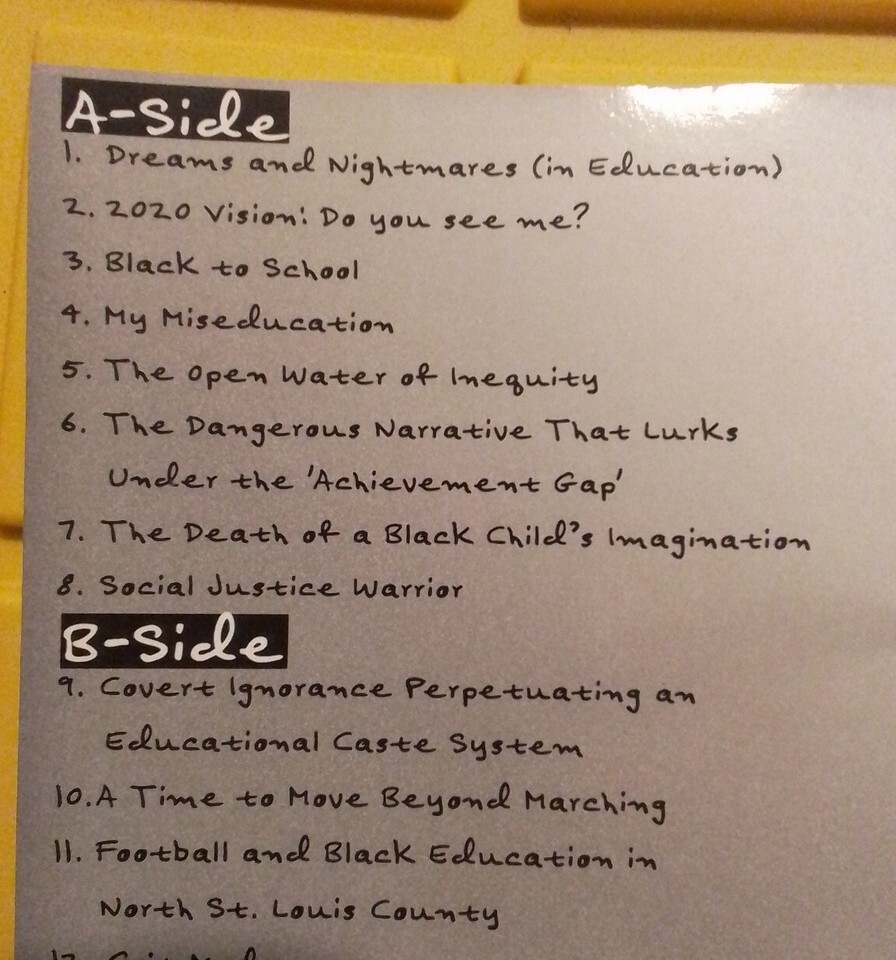 A-Side
1. Dreams and Nightmares (in Education)
2. 2020 Vision: Do you see me?
3. Black to School
4. My Miseducation
5. The Open Water of Inequity
6. The Dangerous Narrative That Lurks
Under the 'Achievement Gap'
7. The Death of a Black Child's Imagination
8. Social Justice Warrior
B-Side
9. Covert Ignorance Perpetuating an
Educational Caste System
10. A Time to Move Beyond Marching
11. Football and Black Education in
North St. Louis County